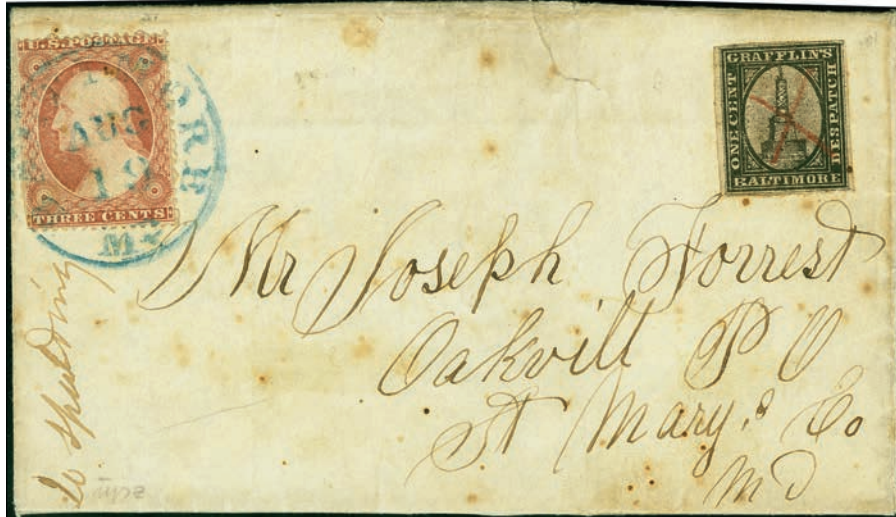 U.S. POSTAGE
THREE CENTS
BALTIMORE
AUG
19
Md
GRAFFLIN'S
ONE CENT
DESPATCH
BALTIMORE
Mr Joseph Forrest
Oakvill P O
St Mary's Co
Md